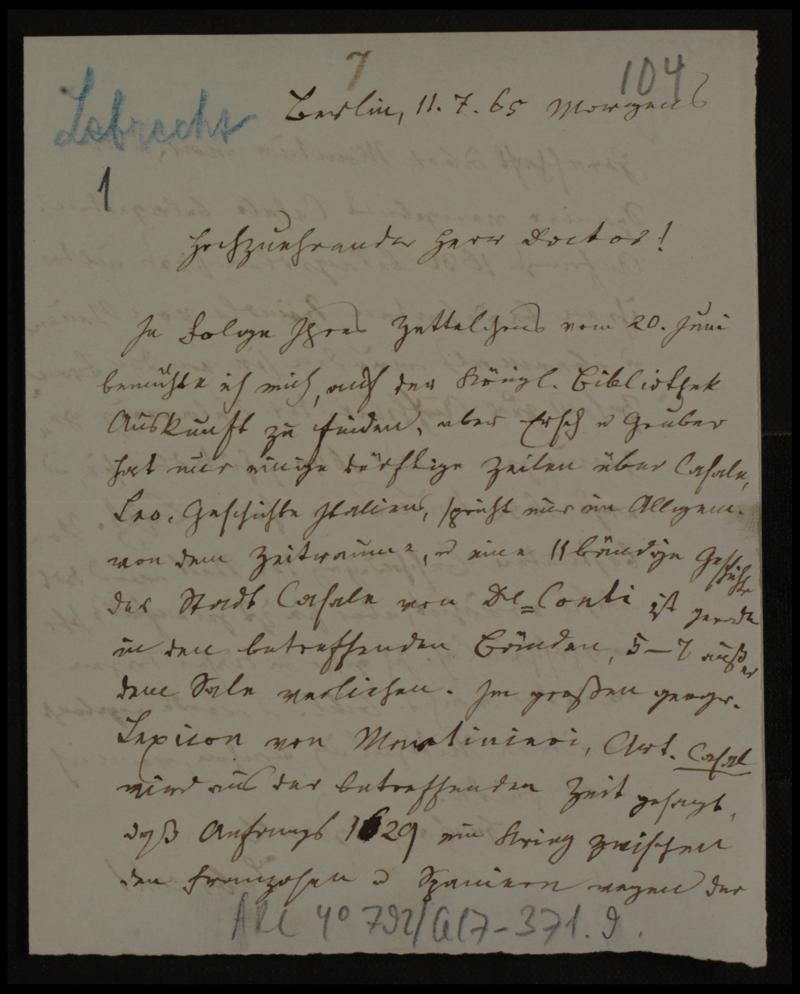 7
104
Lebrecht
Berlin, 11. 7. 65 Morgens
1
Hochzuehrender Herr Doctor!
In Folge Ihres Zettelchens vom 20. Juni
bemühte ich mich, auf der Königl. Bibliothek
Auskunft zu finden, aber Ersch u Gruber
hat nur einige dürftige Zeilen über Casale,
Leo, Geschichte Italiens, spricht nur im Allgem.
von dem Zeitraume, u eine 11bändige Geschichte
der Stadt Casale von De=Conti ist gerade
in den betreffenden Bänden, 5–7 außer
dem Sale verliehen. Im großen geogr.
Lexicon von Martiniere, Art. Casal
wird aus der betreffenden Zeit gesagt,
daß Anfangs 1629 ein Krieg zwischen
den Franzosen u Spaniern wegen der
ARC 4° 792/G17-371.9.